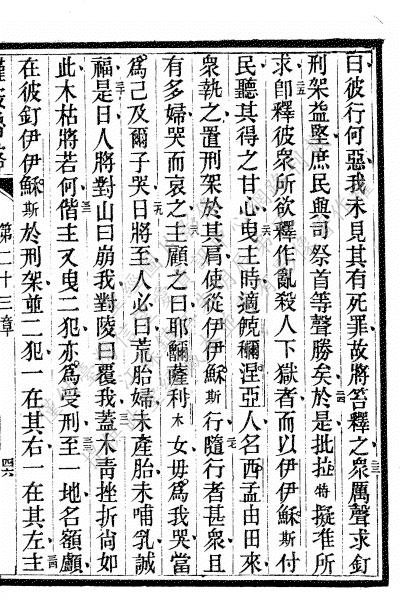 曰彼行何惡我未見其有死罪故將笞釋之衆厲聲求釘
刑架益堅庶民與司祭首等聲勝矣於是批拉特擬准所
求卽釋彼衆所欲釋作亂殺人下獄者而以伊伊穌斯付
民聽其得之甘心曳主時適餽穪涅亞人名西孟由田來
衆執之置刑架於其肩使從伊伊穌斯行隨行者甚衆且
有多婦哭而哀之主顧之曰耶穪薩利木女毋爲我哭當
爲己及爾子哭日將至人必曰荒胎婦未產胎未哺乳誠
福是日人將對山曰崩我對陵曰覆我蓋木靑挫折尚如
此木枯將若何偕主又曳二犯亦爲受刑至一地名額顱
在彼釘伊伊穌斯於刑架並二犯一在其右一在其左主
第二十三章